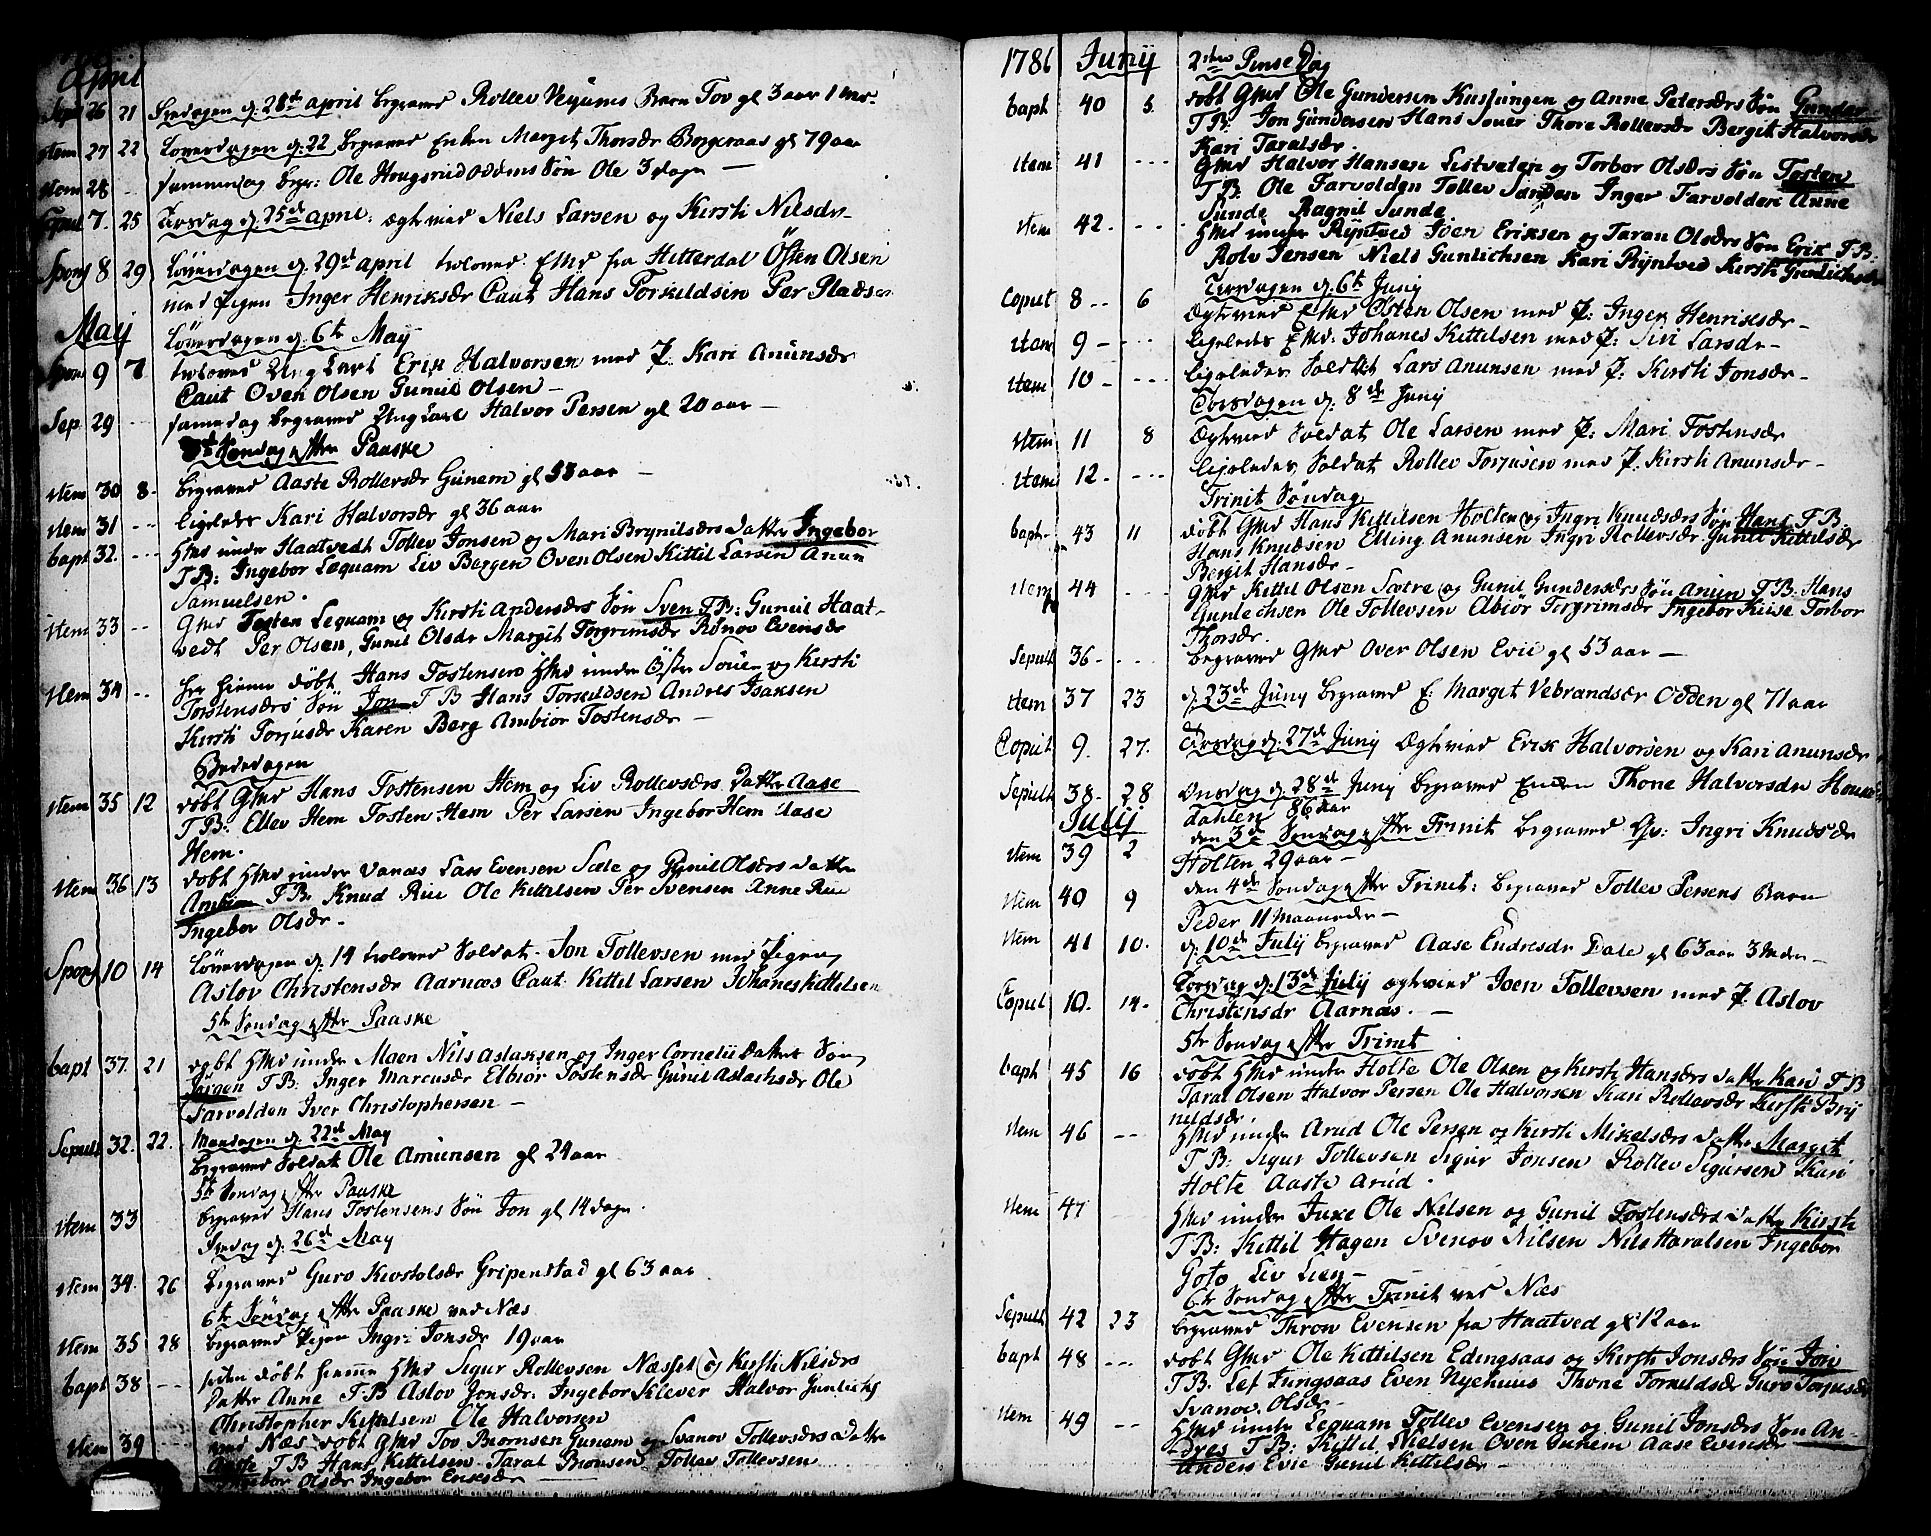 April
Sepl 26 21 Fredagen d. 21de april begraved Rollev Vejums Barn Tov gl 3 aar 1 Md-
item 27 22 Löverdagen d: 22 begraved Enken Marget Thorsdr Borgeraas gl 79 aar
item 28 - sammendag begr: Ole Hougsrudoddens Sön Ole 3 dage —
Copul 7. 25 Tirsdag d. 25de april: ægtevied Niels Larsen og Kersti Nilsdr-
Spons 8 29 Löverdagen d. 29de april troloved Ekd fra Hitterdal Östen Olsen
med Pigen Inger Henriksdr Caut Hans Torkildsen Per Pladsen
Maij Löverdagen d: 6te Maÿ
Spons 9 7 troloved Ung Karl Erik Halvorsen med P. Kari Anunsdr
Caut Oven Olsen Gunul Olsen —
Sep. 29 -- sammedag begraved Ung Karl Halvor Persen gl 20 aar —
3de Söndag efter Paaske
item 30 8- begraved Aaste Rollevsdr Gunem gl 53 aar —
item 31 -- ligeledes Kari Halvorsdr gl 36 aar
bapt 32. --- Hmd under Haatvedt Tollev Jonsen og Mari Brynilsdrs datter Ingebor
T B: Ingebor Lequam Liv Bergen Oven Olsen Kittil Larsen Anun
Samuelsen.
item 33 -- Gmd Tosten Lequam og Kersti Andersdrs Sön Sven T B: Gunul Haat-
vedt Per Olsen, Gunil Olsdr Margit Torgrimsdr Rönov Evensdr
item 34 -- her hieme döbt Hans Tostensen Hmd under Öster Souer og Kersti
Torstensdrs Sön Jon T B Hans Torkildsen Andres Isaksen
Kersti Torjusdr Karen Berg Ambior Tostensdr —
Bededagen
item 35 12 döbt Gmd Hans Tostensen Hem og Liv Rollevsdrs Datter Aase
T B: Ellev Hem Tosten Hem Per Larsen Ingebor Hem Aase
Hem.
item 36 13 döbt Hmd under Vanæs Lars Evensen Sale og Gunil Olsdrs datter
Ambior T B: Knud Rue Ole Kittilsen Per Svensen Anne Rue
Ingebor Olsdr -
Spons 10 14 Löverdagen d. 14 troloved Soldat Jon Tollevsen med Pigen
Aslov Christensdr Aarnæs Caut Kittil Larsen Johanes Kittilsen
5te Söndag efter Paaske
bapt 37. 21 döbt Hmd under Moen Nils Aslaksen og Inger Cornelii datters Sön
Jörgen T B: Inger Marcusdr Elbior Tostensdr Gunil Aslachsdr Ole
Tarvolden Iver Christophersen —
Mandagen d. 22de May
Sepult 32. 22. begraved Soldat Ole Amunsen gl 24 aar
5te Söndag efter Paaske
item 33 begraved Hans Tostensens Sön Jon gl 14 dage.
Fredag d: 26de May
item 34. 26 begraved Guro Kirstolsdr Gripenstad gl 63 aar
6te Söndag efter Paaske ved Næs
item 35 28 begraved Pigen Ingri Jonsdr 19 aar
bapt 38 -- siden döbt hieme Hmd Sigur Rollevsen Næsset og Kersti Nilsdrs
Datter Anne T B Aslov Jonsdr. Ingebor Klever Halvor Gunlichs
Christopher Kittilsen Ole Halvorsen
item 39 ved Næs döbt Gmd Tov Biornsen Gunem og Svanov Tollevsdrs datter
Aaste T B Hans Kittilsen Taral Biornsen Tollev Tollevsen
Ingebor Olsdr Ingebor Eriksdr —
1786 Junij 2den Pinse Dag
bapt 40 5. döbt Gmd Ole Gundersen Kusjungen og Anne Petersdrs Sön Gunder
T B: Jon Gundersen Hans Souer Thore Rollevsdr Bergit Halvorsdr
Kari Taralsdr.
item 41 --- Gmd Halvor Hansen Listveten og Torbor Olsdrs Sön Tosten
T B. Ole Tarvolden Tollev Sanden Inger Tarvolden Anne
Sunde Ragnil Sunde
item 42. --- Hmd under Ryntved Iver Eriksen og Taran Olsdrs Sön Erik T B:
Rolv Jensen Niels Gunlichsen Kari Ryntved Kersti Gunlichsdr
Tirsdagen d. 6te Junij
Copult 8-- 6 Ægteviedt Ekd Östen Olsen med P: Inger Henriksdr -
item 9 - --- ligeledes Ekd. Johanes Kittilsen med P: Siri Larsdr-
item 10 - --- ligeledes Soldat Lars Anunsen med P: Kersti Jonsdr-
Torsdagen d. 8de Junij
item 11 8 Ægteviedt Soldat Ole Larsen med P. Mari Tostensdr
item 12 - --- ligeledes Soldat Rollev Torjusen med P. Kersti Anunsdr-
Trinit Söndag
bapt- 43 11 döbt Gmd Hans Kittilsen Holten og Ingri Knudsdrs Sön Hans T B.
Hans Knudsen Elling Anunsen Ingri Rollevsdr Gunil Kittilsdr
Bergit Hansdr.
item 44 --- Gmd Kittil Olsen Sætre og Gunil Gundersdrs Sön Anun T B: Hans
Gunlichsen Ole Tollevsen Abior Torgrimsdr Ingebor Kiise Torbor
Thorsdr.
Sepult 36 - --- begraved Gmd Over Olsen Evie gl 53 aar —
item 37 23 d. 23de Junij begraved E: Marget Vebrandsdr Odden gl 71 aar
Copult 9. 27. Tirsdag d. 27de Junij Ægteviedt Erik Halvorsen og Kari Anunsdr
Sepult 38- 28 Onsdag d. 28de Junij begraved Enken Thone Halvorsdr House
dahlen 86 aar
Julij den 3de Söndag efter Trinit begraved Qv: Ingri Knudsdr
item 39 2 Holten 29 aar —
item 40 9 den 4de Söndag efter Trinit: begraved Tollev Persens Barn
Peder 11 Maaneder —
item 41 10. d: 10de Julij begraved Aase Endresdr Dale gl 63 aar 3 Mdr —
Copul 10. 14- Torsdag d. 13de Julij ægteviedt Joen Tollevsen med P. Aslov
Christensdr Aarnæs. —
5te Söndag efter Trinit
bapt 45 16 döbt Hmd under Holte Ole Olsen og Kersti Hansdrs datter Kari T B
Taral Olsen Halvor Persen Ole Halvorsen Kari Rollevsdr Kersti Bry
nildsdr
item 46 -- Hmd under Arud Ole Persen og Kersti Mikelsdrs datter Marget
T B: Sigur Tollevsen Sigur Jonsen Rollev Sigursen Kari
Holte Aaste Arud.
item 47 --- Hmd under Juxe Ole Nilsen og Gunil Tostensdrs datter Kirsti
T B: Kittil Hagen Svenov Nilsen Nils Haralsen Ingebor
Goto Liv Lien —
6te Söndag efter Trinit ved Næs
Sepult 42 23 begraved Thron Evensen fra Haatved gl 12 aar
bapt 48 --- döbt Gmd Ole Kittilsen Edingsaas og Kersti Jonsdrs Sön Jon
T B. Lef Jungsaas Even Nyehuus Thone Torkildsdr Guro Torjusdr
Svanov Olsdr -
item 49 -- Hmd under Lequam Tollev Evensen og Gunil Jonsdrs Sön An-
dres T B: Kittil Nielsen Oven Gunem Aase Evensdr
Anders Evie Gunil Kittilsdr —